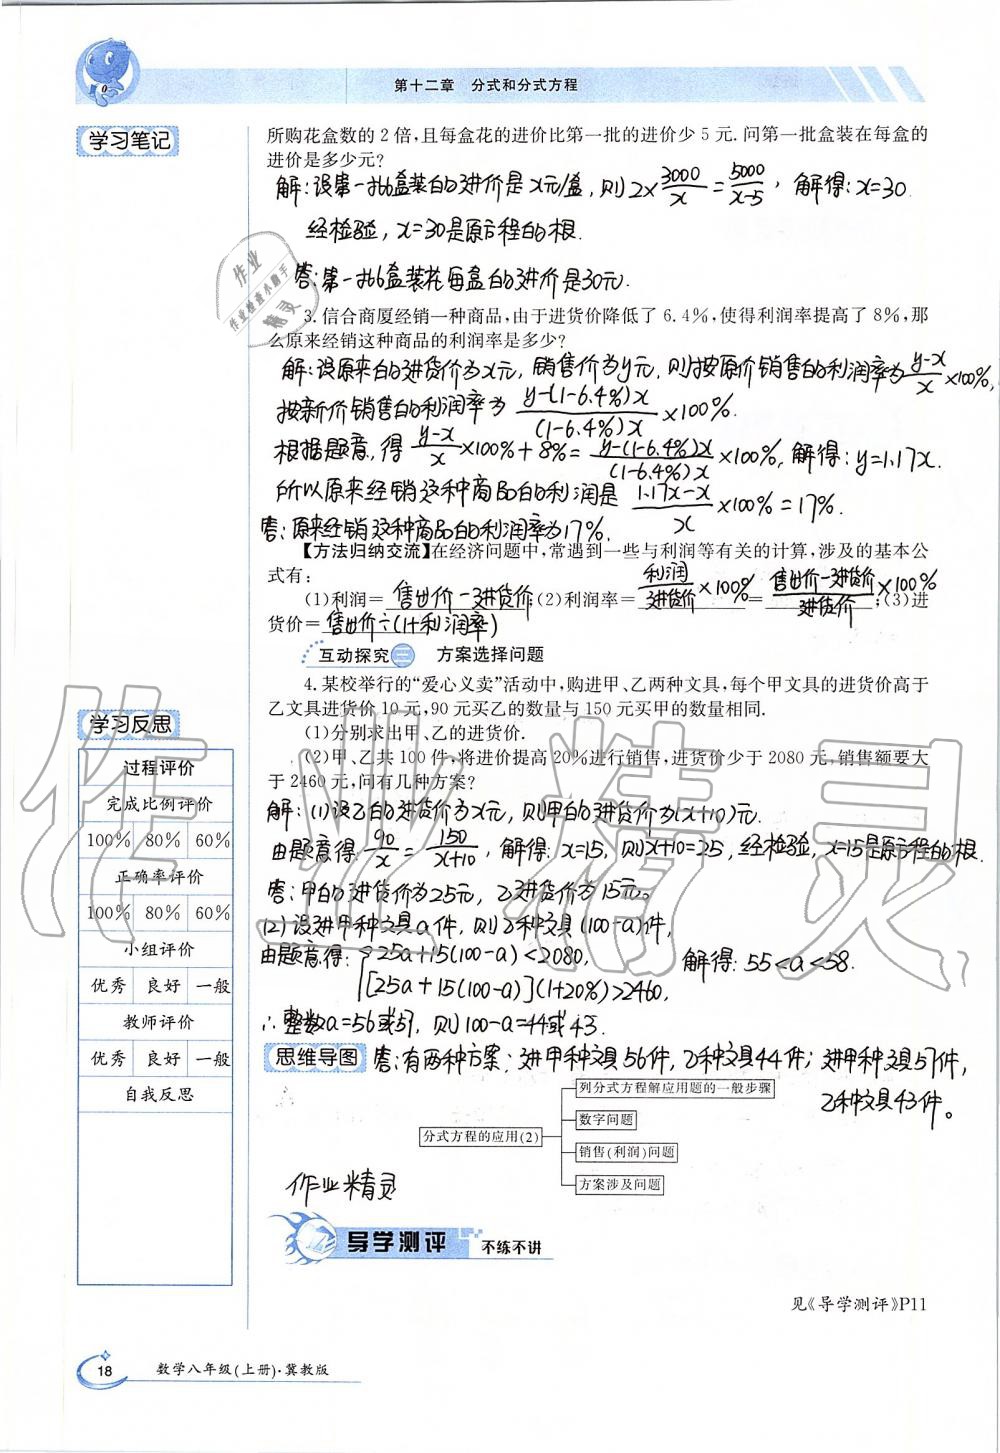 第十二章　分式和分式方程
学习笔记
所购花盒数的2倍,且每盒花的进价比第一批的进价少5元.问第一批盒装在每盒的
进价是多少元?
解:设第一批盒装的进价是x元/盒,则2×3000/x=5000/(x-5),解得:x=30.
经检验,x=30是原方程的根.
答:第一批盒装花每盒的进价是30元.
3.信合商厦经销一种商品,由于进货价降低了6.4%,使得利润率提高了8%,那
么原来经销这种商品的利润率是多少?
解:设原来的进货价为x元,销售价为y元,则按原价销售的利润率为(y-x)/x×100%,
按新价销售的利润率为(y-(1-6.4%)x)/((1-6.4%)x)×100%.
根据题意,得(y-x)/x×100%+8%=(y-(1-6.4%)x)/((1-6.4%)x)×100%,解得:y=1.17x.
所以原来经销这种商品的利润是(1.17x-x)/x×100%=17%.
答:原来经销这种商品的利润率为17%.
【方法归纳交流】在经济问题中,常遇到一些与利润等有关的计算,涉及的基本公
式有:
(1)利润=售出价-进货价;(2)利润率=利润/进货价×100%=(售出价-进货价)/进货价×100%;(3)进
货价=售出价÷(1+利润率)
互动探究三　方案选择问题
4.某校举行的“爱心义卖”活动中,购进甲、乙两种文具,每个甲文具的进货价高于
乙文具进货价10元,90元买乙的数量与150元买甲的数量相同.
(1)分别求出甲、乙的进货价.
(2)甲、乙共100件,将进价提高20%进行销售,进货价少于2080元,销售额要大
于2460元,问有几种方案?
解:(1)设乙的进货价为x元,则甲的进货价为(x+10)元.
由题意得:90/x=150/(x+10),解得:x=15,则x+10=25,经检验,x=15是原方程的根.
答:甲的进货价为25元,乙进货价为15元。
(2)设进甲种文具a件,则乙种文具(100-a)件,
由题意得:{25a+15(100-a)<2080,
[25a+15(100-a)](1+20%)>2460,
解得:55<a<58.
∴整数a=56或57,则100-a=44或43.
答:有两种方案:进甲种文具56件,乙种文具44件;进甲种文具57件,
乙种文具43件。
学习反思
过程评价
完成比例评价
100% 80% 60%
正确率评价
100% 80% 60%
小组评价
优秀 良好 一般
教师评价
优秀 良好 一般
自我反思
思维导图
分式方程的应用(2)
列分式方程解应用题的一般步骤
数字问题
销售(利润)问题
方案涉及问题
作业精灵
导学测评 不练不讲
见《导学测评》P11
18
数学八年级(上册)·冀教版
作业
作业检查小助手
精灵
作业精灵